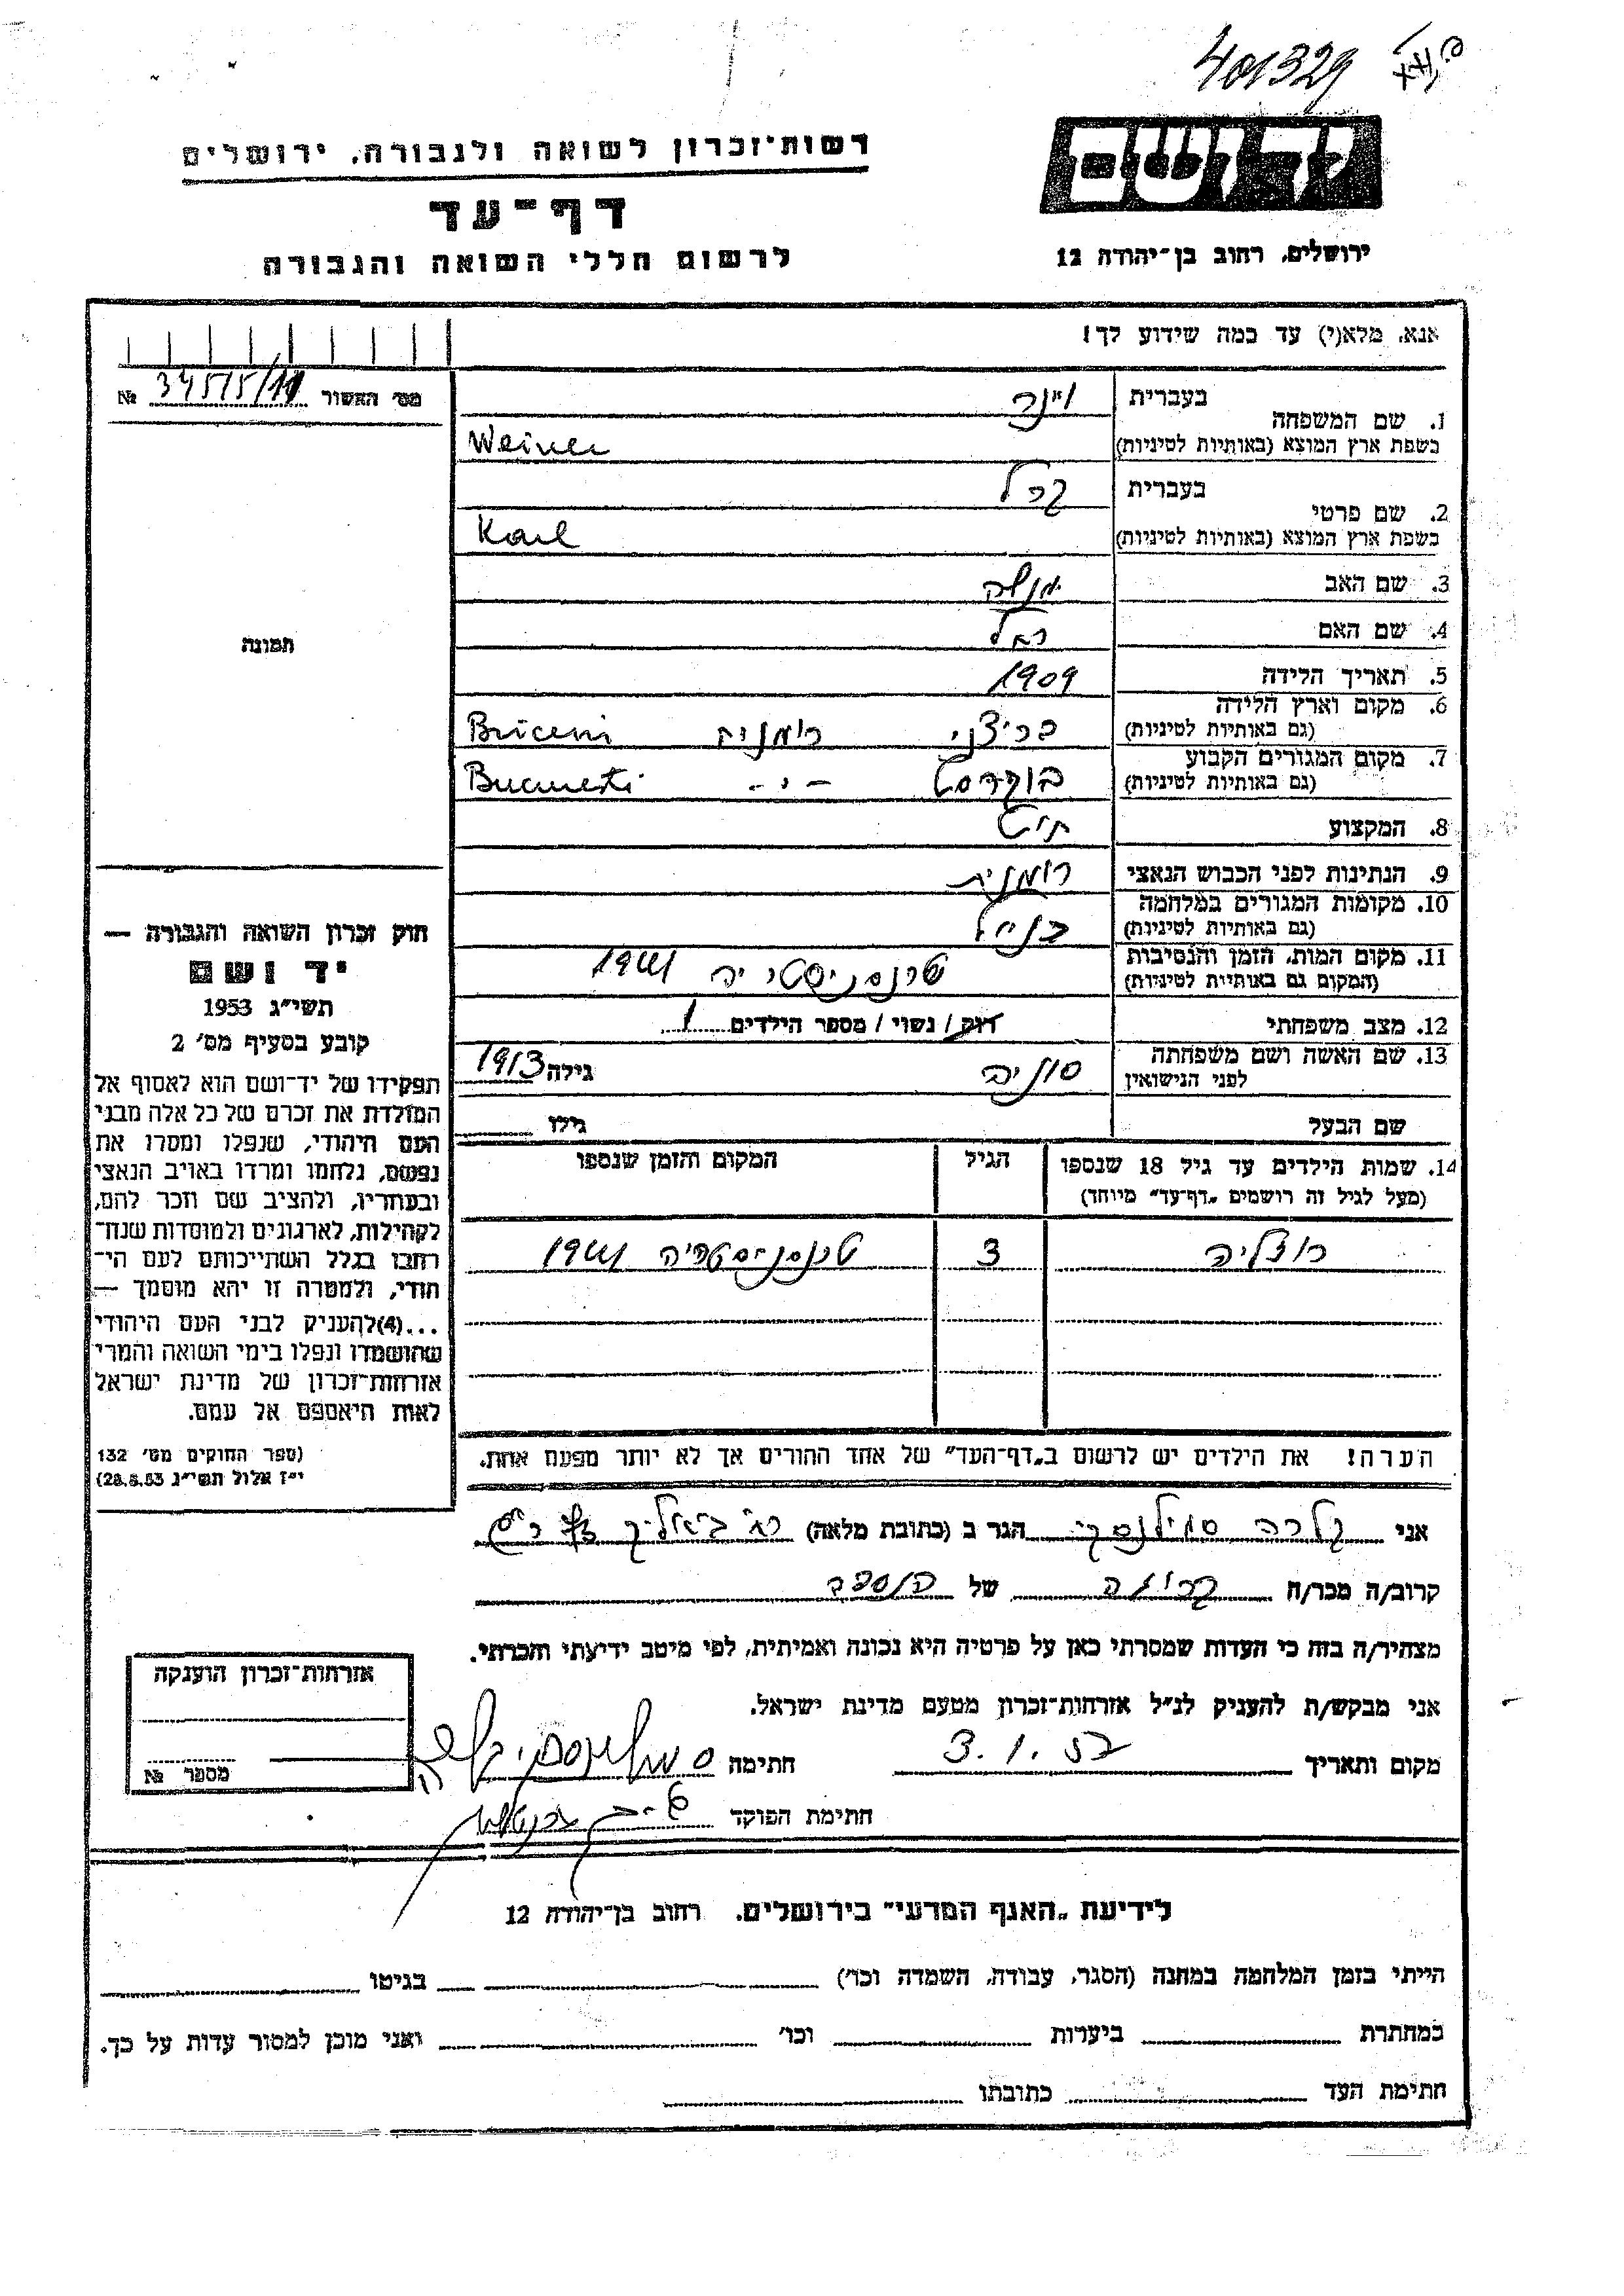 401329
רשות־זכרון לשואה ולגבורה, ירושלים
יד ושם
דף־עד
ירושלים, רחוב בן־יהודה 12
לרשום חללי השואה והגבורה
אנא, מלא(י) עד כמה שידוע לך!
מס׳ האשור № 34515/11
1. שם המשפחה
בעברית וינר
בשפת ארץ המוצא (באותיות לטיניות) Weiner
2. שם פרטי
בעברית קרל
בשפת ארץ המוצא (באותיות לטיניות) Karl
3. שם האב מנשה
4. שם האם רחל
תמונה
5. תאריך הלידה 1909
6. מקום וארץ הלידה (גם באותיות לטיניות) בריצ'ני רומניה Briceni
7. מקום המגורים הקבוע (גם באותיות לטיניות) בוקרסט -"- Bucuresti
8. המקצוע
9. הנתינות לפני הכבוש הנאצי רומנית
10. מקומות המגורים במלחמה (גם באותיות לטיניות) כנ"ל
11. מקום המות, הזמן והנסיבות (המקום גם באותיות לטיניות) טרנסניסטריה 1941
12. מצב משפחתי רוק / נשוי / מספר הילדים 1
13. שם האשה ושם משפחתה לפני הנישואין סוניה גילה 1913
שם הבעל גילו
14. שמות הילדים עד גיל 18 שנספו הגיל המקום והזמן שנספו
(מעל לגיל זה רושמים „דף־עד" מיוחד)
רוזליה 3 טרנסניסטריה 1941
חוק זכרון השואה והגבורה —
יד ושם
תשי״ג 1953
קובע בסעיף מס׳ 2
תפקידו של יד־ושם הוא לאסוף אל
המולדת את זכרם של כל אלה מבני
העם היהודי, שנפלו ומסרו את
נפשם, נלחמו ומרדו באויב הנאצי
ובעוזריו, ולהציב שם וזכר להם,
לקהילות, לארגונים ולמוסדות שנח־
רחבו בגלל השתייכותם לעם הי־
הודי, ולמטרה זו יהא מוסמך —
...(4)להעניק לבני העם היהודי
שהושמדו ונפלו בימי השואה והמרי
אזרחות־זכרון של מדינת ישראל
לאות היאספם אל עמם.
(ספר החוקים מס׳ 132
י״ז אלול תשי״ג 28.8.53)
הערה! את הילדים יש לרשום ב„דף־העד" של אחד ההורים אך לא יותר מפעם אחת.
אני קלרה סמילנסקי הגר ב (כתובת מלאה) רח' ביאליק
קרוב/ה מכר/ה קרובה של הנספה
מצהיר/ה בזה כי העדות שמסרתי כאן על פרטיה היא נכונה ואמיתית, לפי מיטב ידיעתי והכרתי.
אני מבקש/ת להעניק לנ״ל אזרחות־זכרון מטעם מדינת ישראל.
מקום ותאריך 3.1.57 חתימה סמילנסקי קלרה
חתימת הפוקד
אזרחות־זכרון הוענקה
מספר №
לידיעת „האגף המדעי" בירושלים, רחוב בן־יהודה 12
הייתי בזמן המלחמה במחנה (הסגר, עבודה, השמדה וכו׳) בגיטו
במחתרת ביערות וכו׳ ואני מוכן למסור עדות על כך.
חתימת העד כתובתו